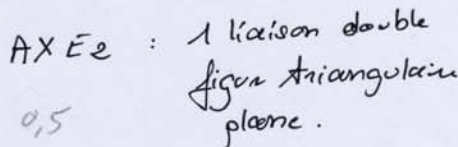 AXE2 : 1 liaison double
figure triangulaire
plane.
0,5